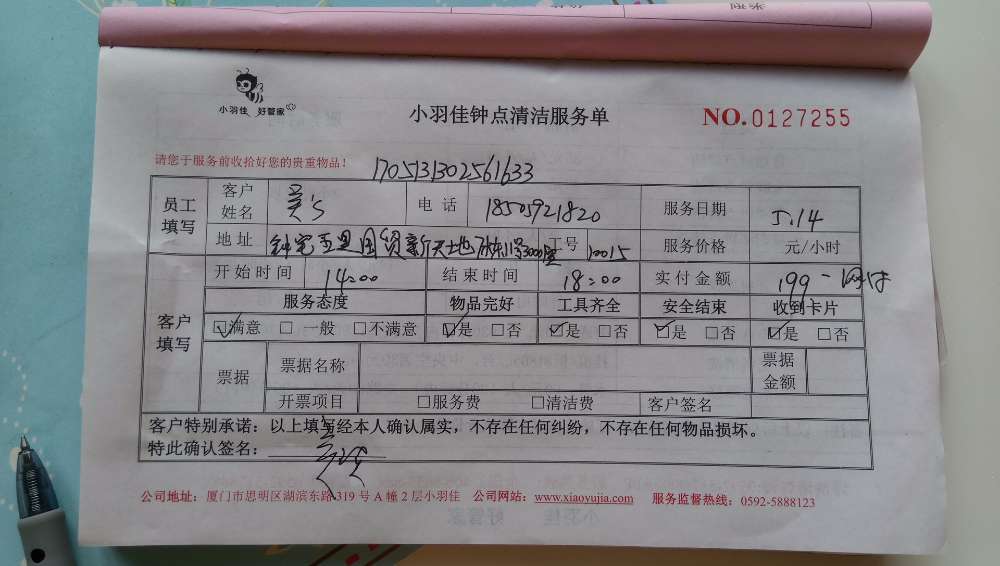 小羽佳 好管家
小羽佳钟点清洁服务单
NO.0127255
请您于服务前收拾好您的贵重物品！
1705131302561633
员工填写 客户姓名 吴's 电话 18505921820 服务日期 5.14
地址 钟宅五里国贸新天地 工号 10015 服务价格 元/小时
客户填写 开始时间 14:00 结束时间 18:00 实付金额 199 - 网付
服务态度 物品完好 工具齐全 安全结束 收到卡片
☑满意 □一般 □不满意 ☑是 □否 ☑是 □否 ☑是 □否 ☑是 □否
票据 票据名称 票据金额
开票项目 □服务费 □清洁费 客户签名
客户特别承诺：以上填写经本人确认属实，不存在任何纠纷，不存在任何物品损坏。
特此确认签名：
公司地址：厦门市思明区湖滨东路 319 号 A 幢 2 层小羽佳 公司网站：www.xiaoyujia.com 服务监督热线：0592-5888123